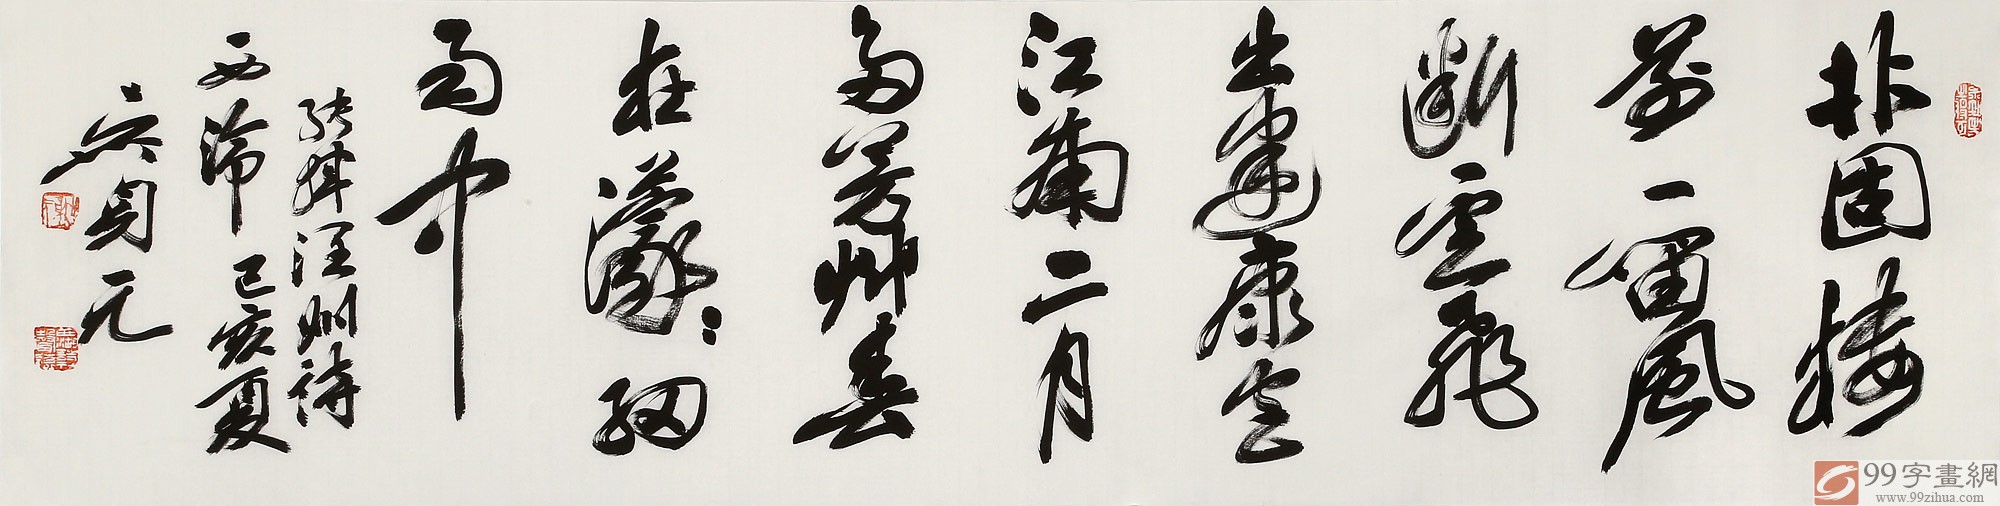 北固樓
前一笛風
斷雲飛
出建康宮
江南二月
多芳艸春
在濛濛細
雨中
潤州詩
西泠 己亥夏
吳身元
99字畫網
www.99zihua.com